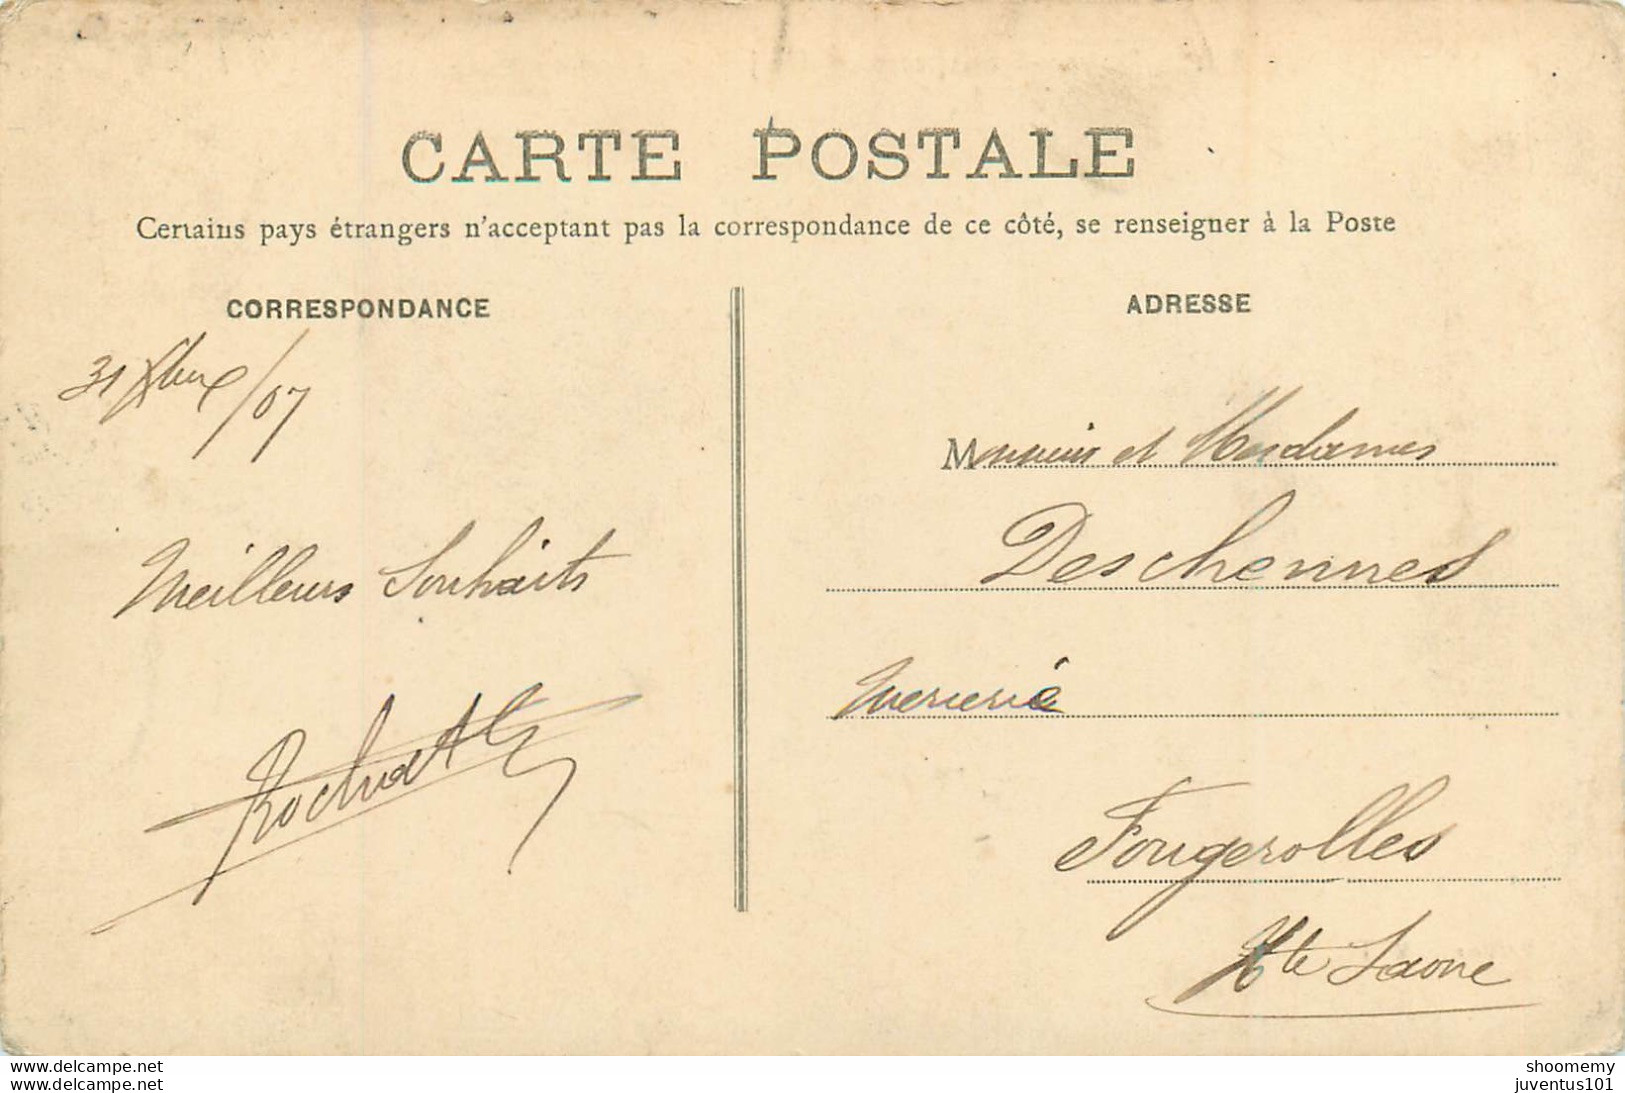 CARTE POSTALE
Certains pays étrangers n'acceptant pas la correspondance de ce côté, se renseigner à la Poste
CORRESPONDANCE
31 Xbre/07
Meilleurs Souhaits
ADRESSE
Monsieur et Mesdames
Deschennes
Mercerie
Fougerolles
Hte Saone
https://www.delcampe.net
https://www.delcampe.net
shoomemy
juventus101